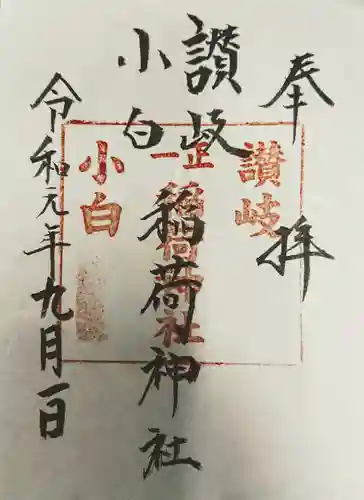 奉拝
讃岐稲荷神社
小白
令和元年九月一日
讃岐
正一
稲荷社
小白